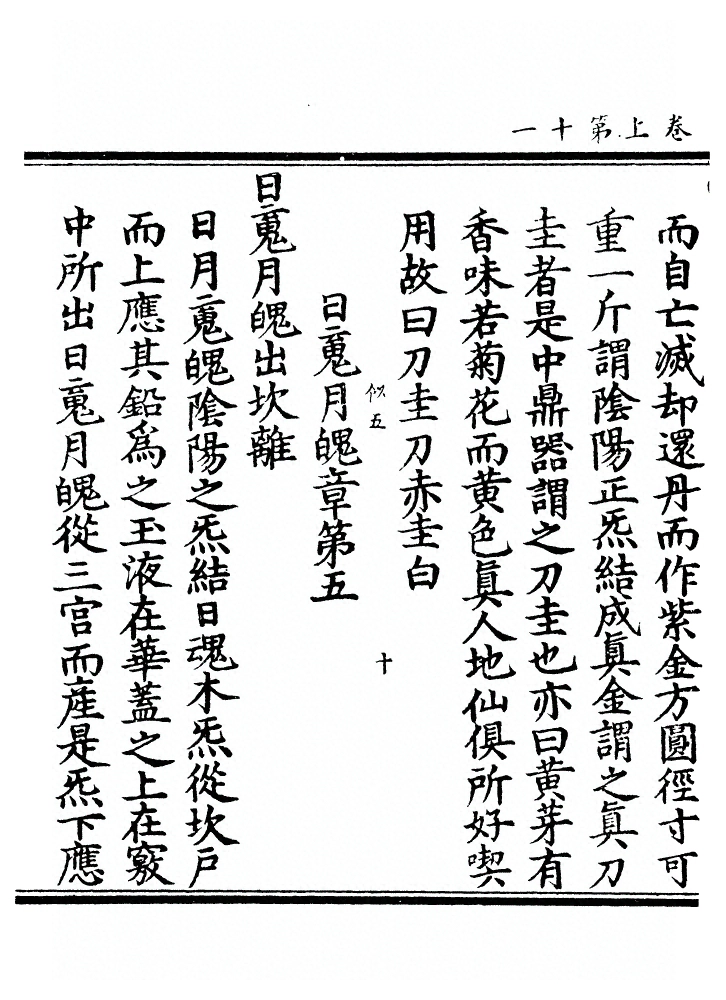 卷上第十一
而自亡滅却還丹而作紫金方圓徑寸可
重一斤謂陰陽正炁結成眞金謂之眞刀
圭者是中鼎器謂之刀圭也亦曰黃芽有
香味若菊花而黃色眞人地仙俱所好喫
用故曰刀圭刀赤圭白
似五
十
日䰟月魄章第五
日䰟月魄出坎離
日月䰟魄陰陽之炁結日魂木炁從坎戶
而上應其鉛爲之玉液在華蓋之上在竅
中所出日䰟月魄從三宫而產是炁下應